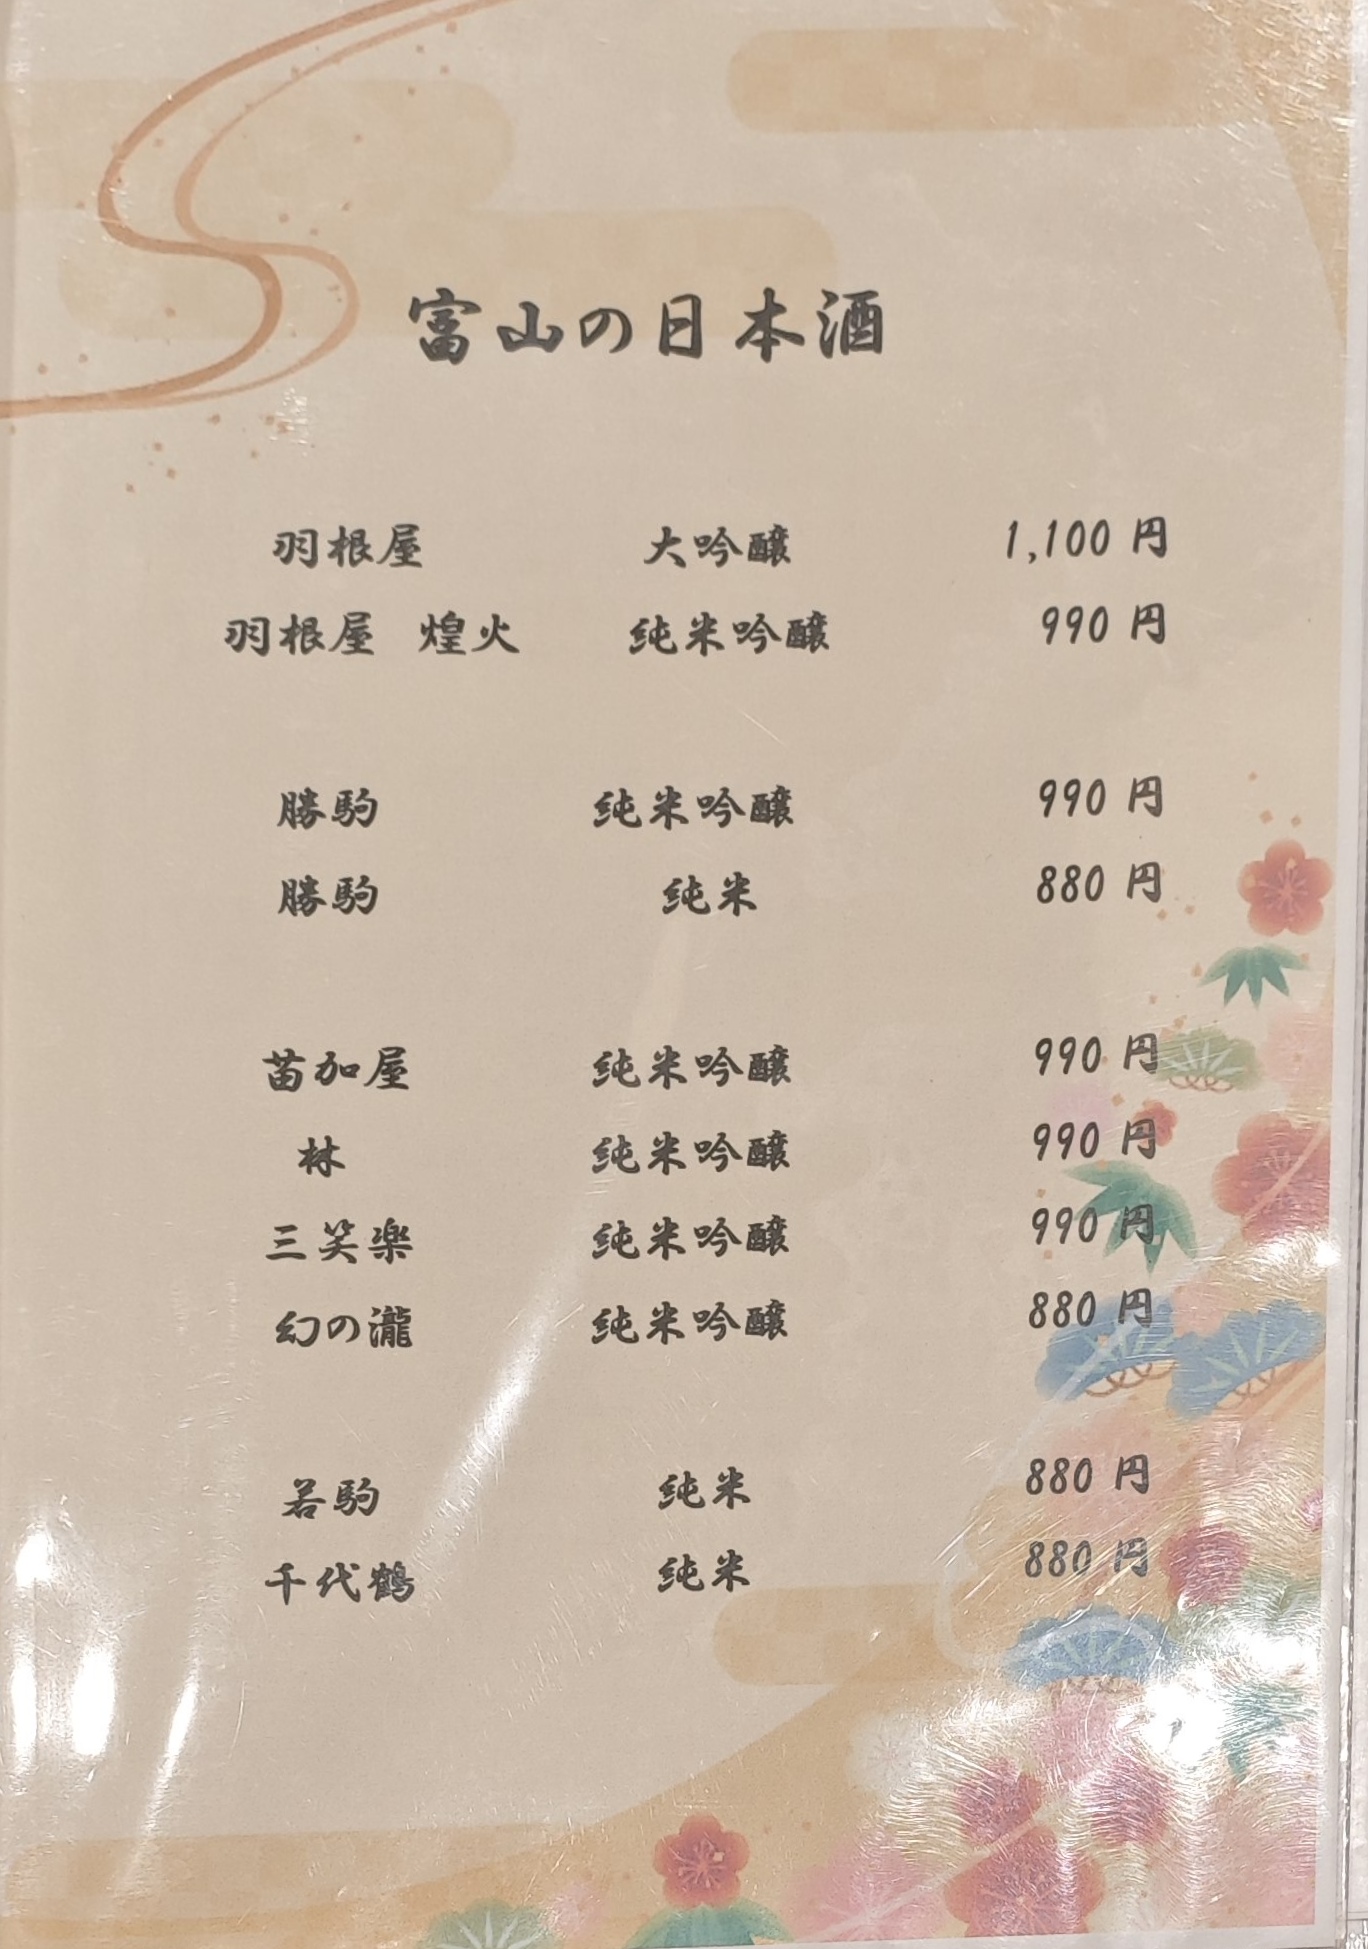 富山の日本酒
羽根屋 大吟醸 1,100 円
羽根屋 煌火 純米吟醸 990 円
勝駒 純米吟醸 990 円
勝駒 純米 880 円
苗加屋 純米吟醸 990 円
林 純米吟醸 990 円
三笑楽 純米吟醸 990 円
幻の瀧 純米吟醸 880 円
若駒 純米 880 円
千代鶴 純米 880 円